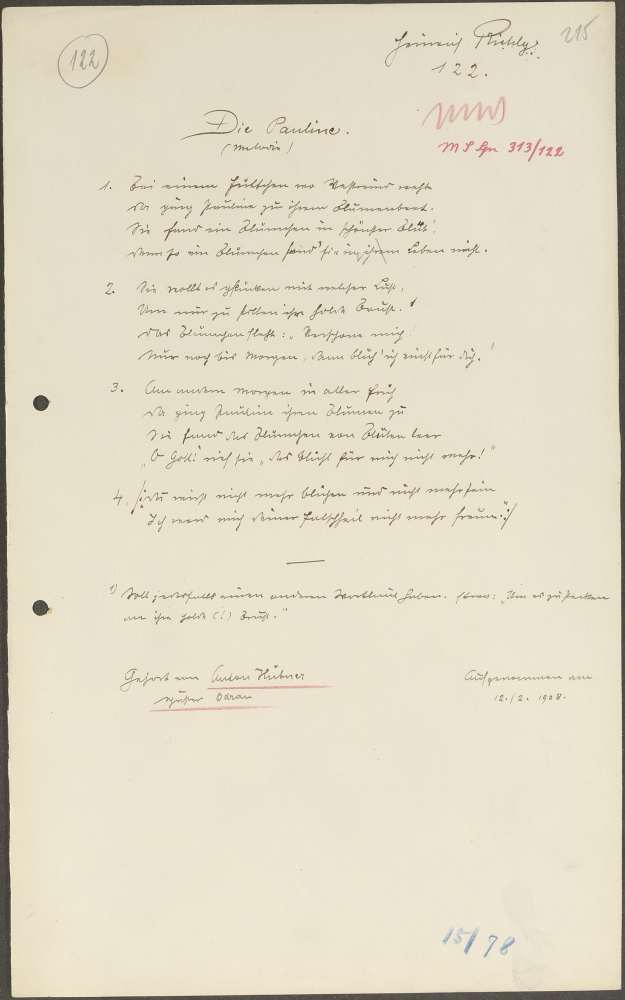 215
122
Heinrich Richly.
122.
Die Pauline.
(Melodie)
MS Gn 313/122
1. Bei einem Hüttchen wo Westwind weht
da ging Pauline zu ihrem Blumenbeet.
Sie fand ein Blümchen in schönster Blüt',
denn so ein Blümchen fand sie in ihrem Leben nicht.
2. Sie wollt es pflücken mit welcher Lust,
Um nur zu füllen ihre holde Brust. 1
Das Blümchen fleht: „Verschone mich
Nur noch bis Morgen, dann blüh' ich einst für dich."
3. Am andern Morgen in aller Früh
da ging Pauline ihren Blumen zu
Sie fand das Blümchen von Blüten leer
„O Gott" rief sie „das blüht für mich nicht mehr!"
4. |: Du wirst nicht mehr blühen und nicht mehr sein
Ich werd mich deiner Falschheit nicht mehr freuen. :|
1) Soll jedenfalls einen anderen Wortlaut haben. etwa: „Um es zu stecken
an ihre holde (!) Brust."
Gehört von Anton Hübner
Odrau
Aufgenommen am
12./2. 1908.
15/78